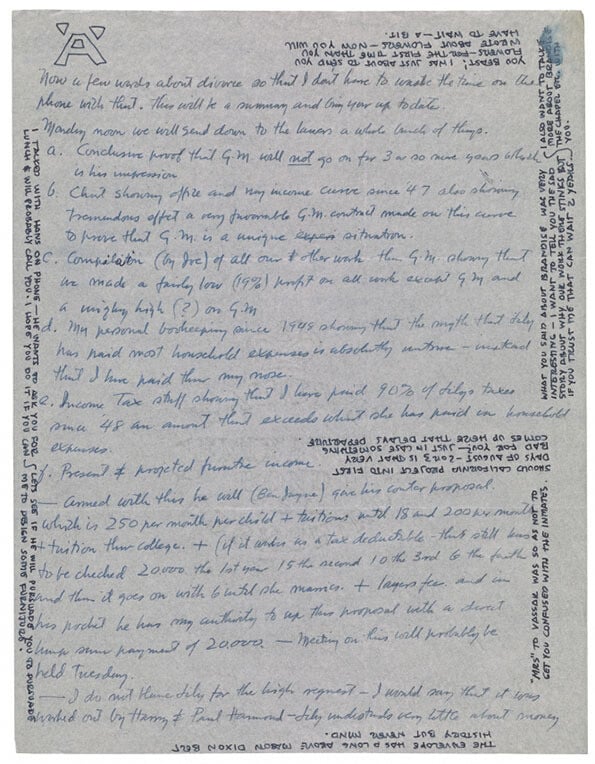 Now a few words about divorce so that I don't have to waste the time on the
phone with that. This will be a summary and bring your up to date.
Monday noon we will send down to the lawers a whole bunch of things.
a. Conclusive proof that G.M. will not go on for 3 or so more years which
is his impression
b. Chart showing office and my income curve since 47 also showing
tremendous effect a very favorable G.M. contract made on this curve
to prove that G.M. is a unique situation.
C. Compilation (by Joe) of all our other work than G.M. showing that
we made a fairly low (19%) profit on all work except G.M and
a mighty high (?) on G.M
d. My personal bookeeping since 1948 showing that the myth that Lily
has paid most household expenses is absolutely untrue – instead
that I have paid thru my nose.
e. Income Tax stuff showing that I have paid 90% of Lilys taxes
since 48 an amount that exceeds what she has paid in household
expenses.
f. Present & projected future income
— Armed with this he will (Ben Jayne) give his counter proposal.
which is 250 per month per child + tuitions until 18 and 200 per month
+ tuition thru college. + (if it works as a tax deductible – that still has
to be checked 20000 the 1st year 15 the second 10 the 3rd 6 the fourth
and then it goes on with 6 until she marries. + lawyers fee. and in
his pocket he has my authority to up this proposal with a secret
lump sum payment of 20.000. — Meeting on this will probably be
held Tuesday.
— I do not blame Lily for the high request – I would say that it was
worked out by Harry & Paul Hammond – Lily understands very little about money
YOU BEAST. I WAS JUST ABOUT TO SEND YOU
FLOWERS – FOR THE FIRST TIME THAN YOU
WROTE ABOUT FLOWERS – NOW YOU WILL
HAVE TO WAIT – A BIT.
WHAT YOU SAID ABOUT BRANDISE WAS VERY
INTERESTING – I WANT TO TELL YOU THE SAD
STORY ABOUT WHY OUR WORK THERE STINKS BUT
IF YOU TRUST ME THAT CAN WAIT 2 YEARS...
I ALSO WANT TO TALK
MORE ABOUT BRANDISE
THE CHAPEL ETC. WITH
YOU.
SHOULD CALIFORNIA PROJECT INTO FIRST
DAYS OF AUGUST – 2 OR 3 IS THAT VERY
BAD FOR YOU? – JUST IN CASE SOMETHING
COMES UP HERE THAT DELAYS DEPARTURE
"MRS" TO VASSAR WAS SO AS NOT TO
GET YOU CONFUSED WITH THE INMATES.
THE ENVELOPE HAS A LONG ABOVE MASON DIXON BELT
HISTORY BUT NEVER MIND.
I TALKED WITH HANS ON PHONE – HE WANTS TO ASK YOU FOR
LUNCH & WILL PROBABLY CALL YOU. I HOPE YOU DO IT IF YOU CAN
LETS SEE IF HE WILL PURSUADE YOU TO PURSUADE
ME TO DESIGN SOME FURNITURE.